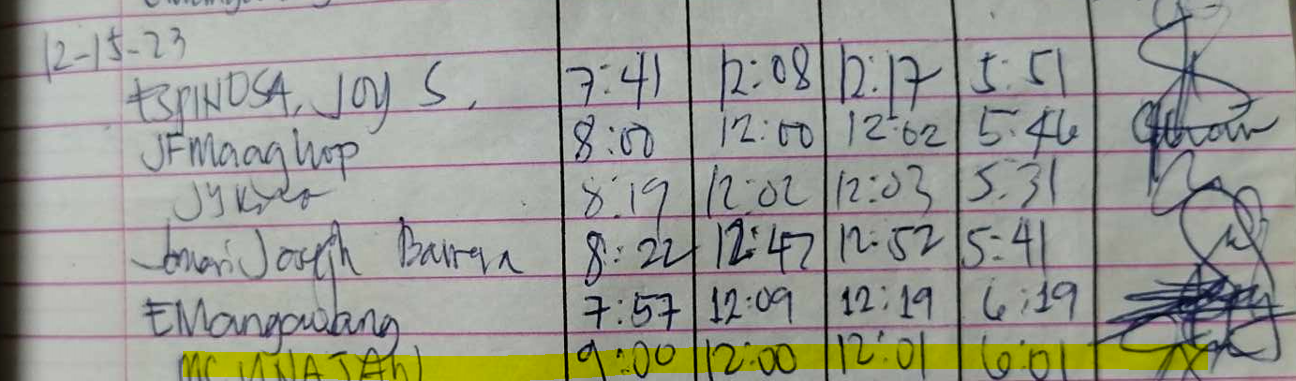 12-15-23
ESPINOSA, JOY S. 7:41 12:08 12:17 5:51
JFMaaghop 8:00 12:00 12:02 5:46
8:19 12:02 12:03 5:31
Joseph Barrera 8:22 12:47 12:52 5:41
EMangawang 7:57 12:09 12:19 6:19
9:00 12:00 12:01 6:01